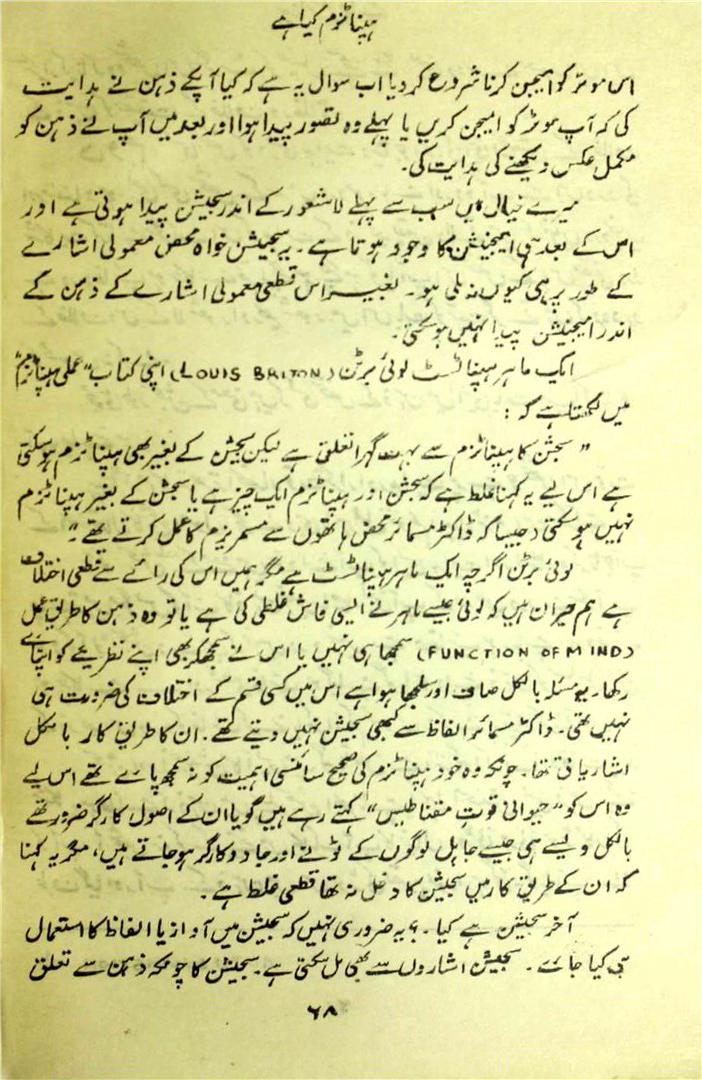 ہپناٹزم کیا ہے
اس موٹر کو امیجن کرنا شروع کر دیا اب سوال یہ ہے کہ کیا آپکے ذہن نے ہدایت
کی کہ آپ موٹر کو امیجن کریں یا پہلے وہ تصور پیدا ہوا اور بعد میں آپ نے ذہن کو
مکمل عکس دیکھنے کی ہدایت کی۔
میرے خیال میں سب سے پہلے لاشعور کے اندر سجیشن پیدا ہوتی ہے اور
اس کے بعد ہی امیجنیشن کا وجود ہوتا ہے۔ یہ سجیشن خواہ محض معمولی اشارے
کے طور پر ہی کیوں نہ ملی ہو۔ بغیر اس قطعی معمولی اشارے کے ذہن کے
اندر امیجنیشن پیدا نہیں ہو سکتی۔
ایک ماہر ہپناٹسٹ لوئی برٹن (LOUIS BRITON) اپنی کتاب "عملی ہپناٹزم"
میں لکھتا ہے کہ :
"سجشن کا ہپناٹزم سے بہت گہرا تعلق ہے لیکن سجشن کے بغیر بھی ہپناٹزم ہو سکتی
ہے اس لیے یہ کہنا غلط ہے کہ سجشن اور ہپناٹزم ایک چیز ہے یا سجشن کے بغیر ہپناٹزم
نہیں ہو سکتی (جیسا کہ ڈاکٹر مسمائر محض ہاتھوں سے مسمریزم کا عمل کرتے تھے۔"
لوئی برٹن اگرچہ ایک ماہر ہپناٹسٹ ہے مگر ہمیں اس کی رائے سے قطعی اختلاف
ہے ہم حیران ہیں کہ لوئی جیسے ماہر نے ایسی فاش غلطی کی ہے یا تو وہ ذہن کا طریق عمل
(FUNCTION OF MIND) سمجھا ہی نہیں یا اس نے سمجھ کر بھی اپنے نظریے کو اپنائے
رکھا۔ یہ مسئلہ بالکل صاف اور سلجھا ہوا ہے اس میں کسی قسم کے اختلاف کی ضرورت ہی
نہیں تھی۔ ڈاکٹر مسمائر الفاظ سے کبھی سجیشن نہیں دیتے تھے۔ ان کا طریق کار بالکل
اشاریاتی تھا۔ چونکہ وہ خود ہپناٹزم کی صحیح سائنسی اہمیت کو نہ سمجھ پائے تھے اس لیے
وہ اس کو "حیوانی قوتِ مقناطیس" کہتے رہے ہیں گویا ان کے اصول کارگر ضرور تھے
بالکل ویسے ہی جیسے جاہل لوگوں کے ٹونے اور جادو کارگر ہو جاتے ہیں، مگر یہ کہنا
کہ ان کے طریق کار میں سجیشن کا دخل نہ تھا قطعی غلط ہے۔
آخر سجیشن ہے کیا۔ ؟ یہ ضروری نہیں کہ سجیشن میں آواز یا الفاظ کا استعمال
ہی کیا جائے۔ سجیشن اشاروں سے بھی مل سکتی ہے۔ سجیشن کا چونکہ ذہن سے تعلق
۶۸